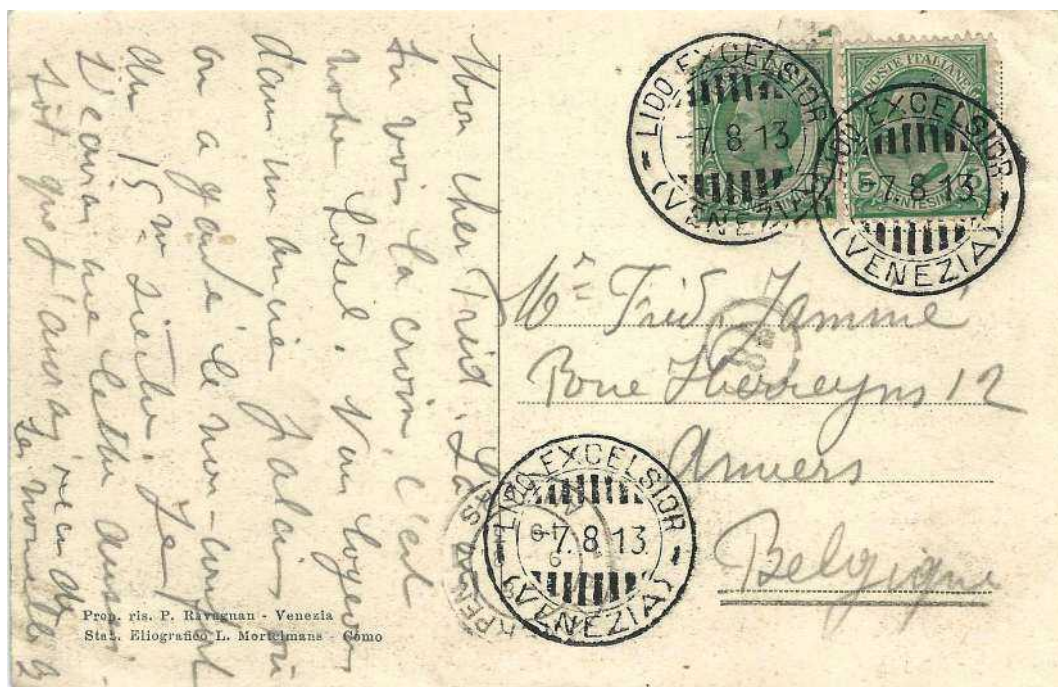 Mon cher Fréd. Là
tu vois la croix c'est
notre hôtel. Nous logeons
dans un ancien palais où
on a gardé le non-confort
du 15me siècle. Je
t'écrirai une lettre aussi-
tôt que j'aurai reçu de
tes nouvelles
Prop. ris. P. Ravagnan - Venezia
Stab. Eliografico L. Mortelmans - Como
LIDO EXCELSIOR
-7.8.13
(VENEZIA)
POSTE ITALIANE
5 CENTESIMI 5
LIDO EXCELSIOR
-7.8.13
(VENEZIA)
Mr Fréd. Jammé
Rue Herreyns 12
Anvers
Belgique
LIDO EXCELSIOR
-7.8.13
(VENEZIA)